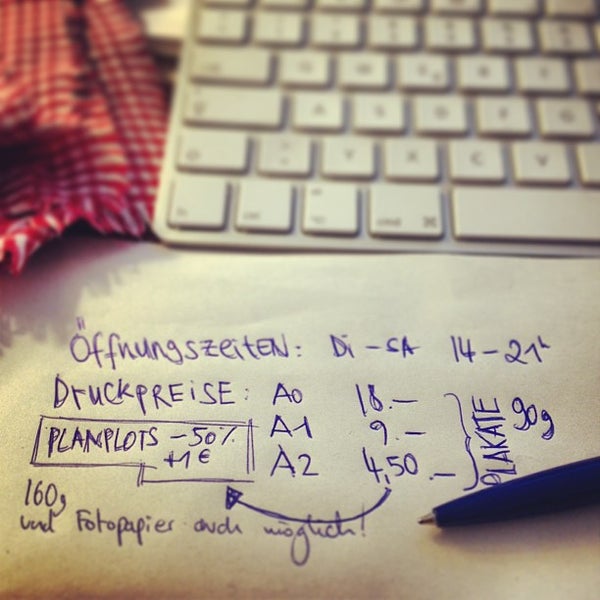 Öffnungszeiten: Di – SA 14 – 21h
Druckpreise: A0 18.–
PLANPLOTS – 50% A1 9.–
+1€ A2 4,50.–
PLAKATE 90g
160g
und Fotopapier auch möglich!